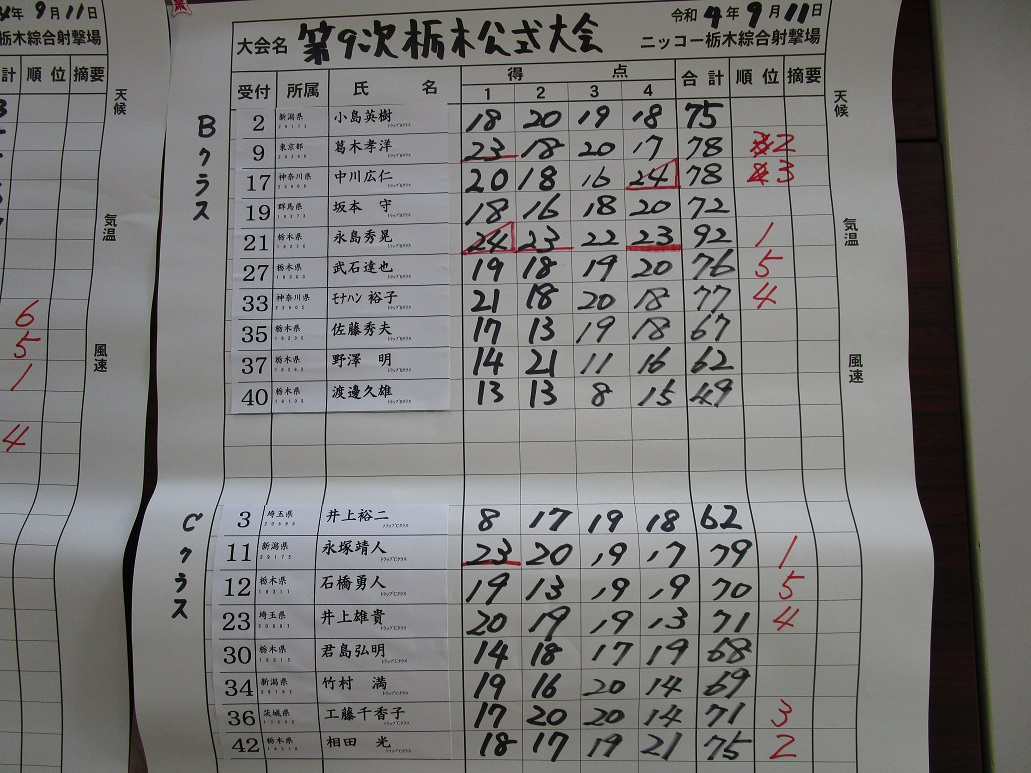 令和4年9月11日
大会名 第9次栃木公式大会 ニッコー栃木綜合射撃場
受付 所属 氏名 得点 合計 順位 摘要
1 2 3 4
Bクラス
2 新潟県 小島英樹 18 20 19 18 75
9 東京都 葛木孝洋 23 18 20 17 78 2
17 神奈川県 中川広仁 20 18 16 24 78 3
19 群馬県 坂本 守 18 16 18 20 72
21 栃木県 永島秀晃 24 23 22 23 92 1
27 栃木県 武石達也 19 18 19 20 76 5
33 神奈川県 ﾓﾅﾊﾝ 裕子 21 18 20 18 77 4
35 栃木県 佐藤秀夫 17 13 19 18 67
37 栃木県 野澤 明 14 21 11 16 62
40 栃木県 渡邊久雄 13 13 8 15 49
Cクラス
3 埼玉県 井上裕二 8 17 19 18 62
11 新潟県 永塚靖人 23 20 19 17 79 1
12 栃木県 石橋勇人 19 13 19 19 70 5
23 埼玉県 井上雄貴 20 19 19 13 71 4
30 栃木県 君島弘明 14 18 17 19 68
34 新潟県 竹村 満 19 16 20 14 69
36 茨城県 工藤千香子 17 20 20 14 71 3
42 栃木県 相田 光 18 17 19 21 75 2
天候
気温
風速
年9月11日
栃木綜合射撃場
計 順位 摘要
天候
気温
風速
6
5
1
4